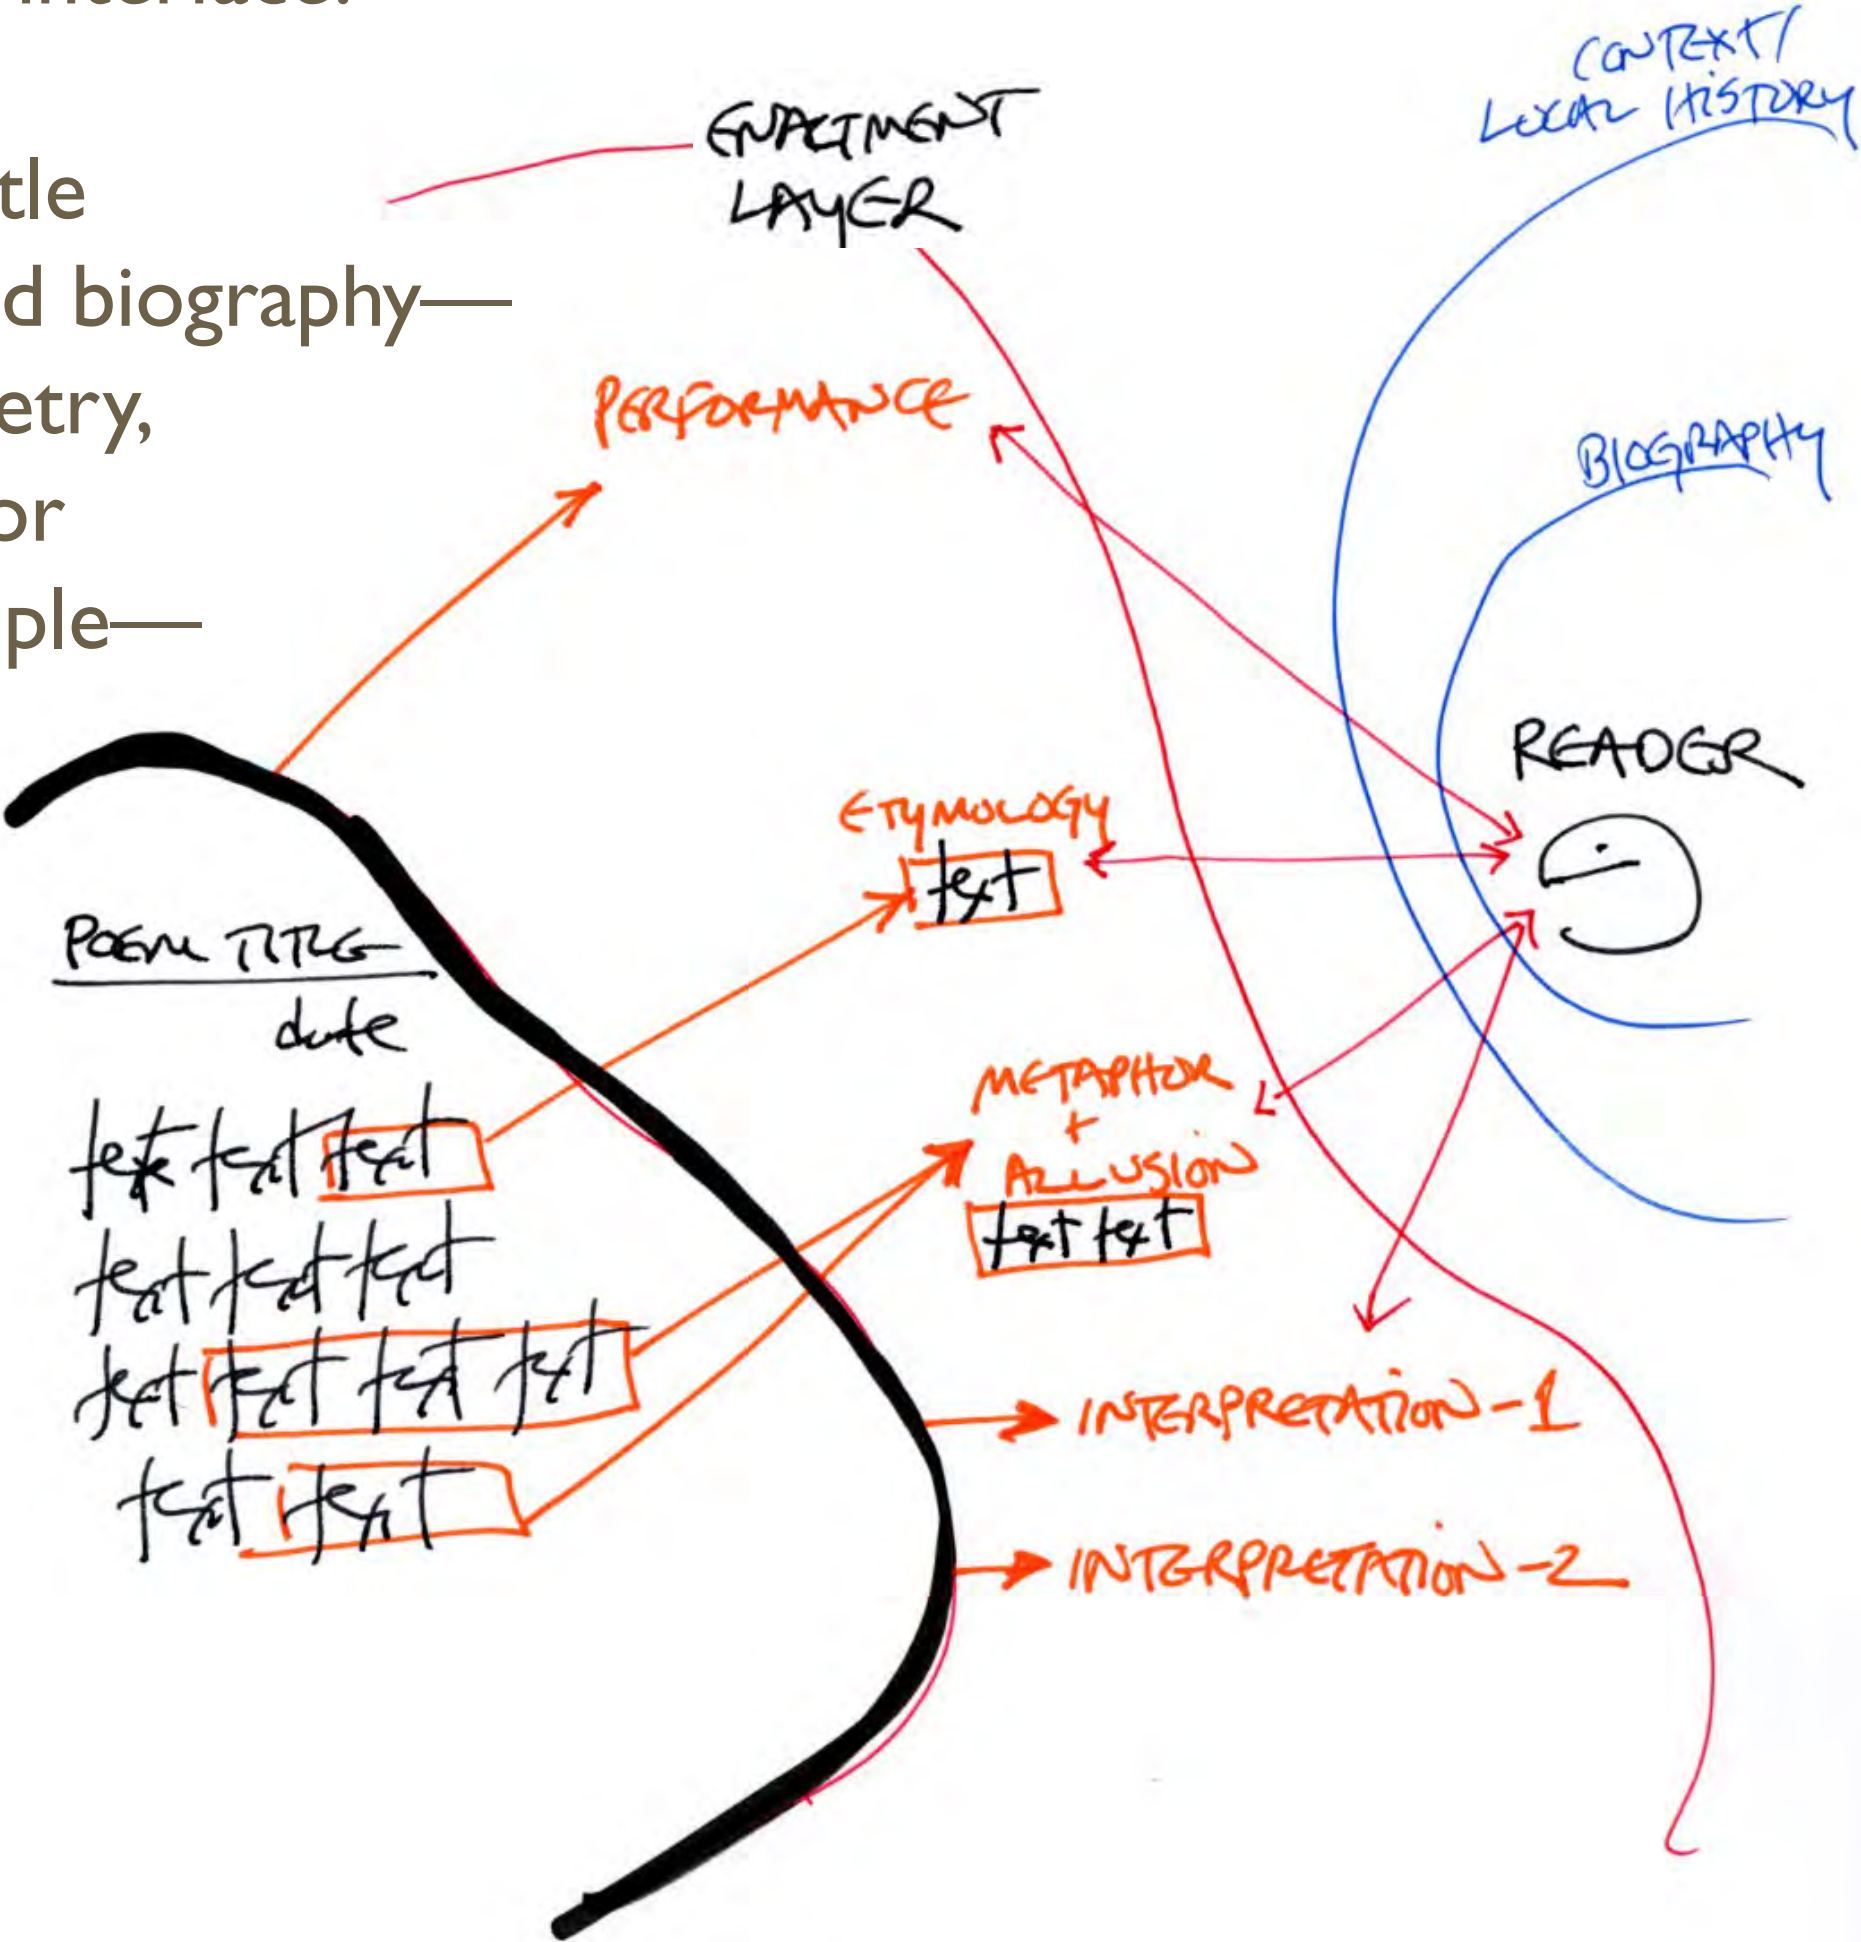 interface.
tle
d biography—
etry,
or
ple—
ENACTMENT
LAYER
CONTEXT/
LOCAL HISTORY
PERFORMANCE
BIOGRAPHY
READER
ETYMOLOGY
text
POEM TITLE
date
text text text
text text text
text text text text
text text
METAPHOR
+
ALLUSION
text text
INTERPRETATION-1
INTERPRETATION-2